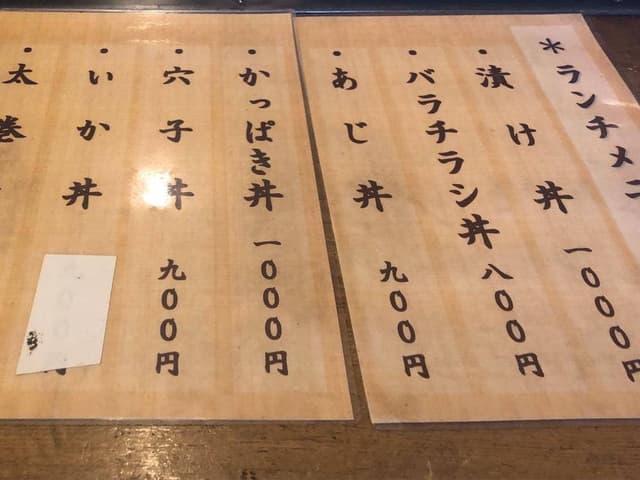 ＊ランチメニ
・漬け丼 一〇〇〇円
・バラチラシ丼 八〇〇円
・あじ丼 九〇〇円
・かっぱき丼 一〇〇〇円
・穴子丼 九〇〇円
・いか丼 円
・太巻